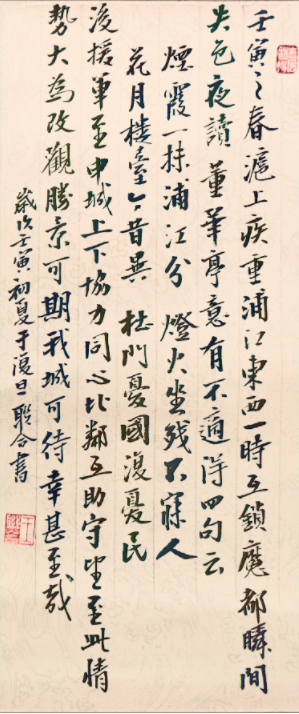 壬寅之春滬上疾重浦江東西一時互鎖魔都瞬間
失色夜讀董華亭意有不適得四句云
煙霞一抹浦江分 燈火坐殘不寐人
花月樓臺今昔異 杜門憂國復憂民
後援軍至申城上下協力同心比鄰互助守望至此情
勢大為改觀勝景可期我城可待幸甚至哉
歲次壬寅初夏于復旦 聯合書